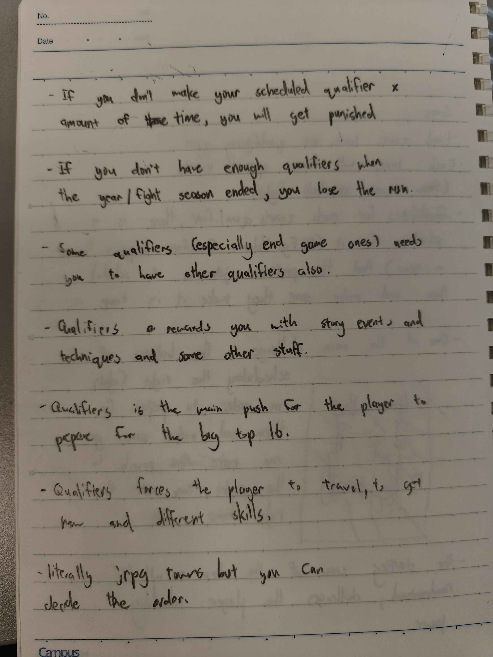 No.
Date
- If you don't make your scheduled qualifier x
amount of time, you will get punished
- If you don't have enough qualifiers when
the year/fight season ended, you lose the run.
- Some qualifiers (especially end game ones) needs
you to have other qualifiers also.
- Qualifiers rewards you with story events and
techniques and some other stuff.
- Qualifiers is the main push for the player to
pepare for the big top 16.
- Qualifiers forces the player to travel, to get
new and different skills.
- literally jrpg towns but you can
decide the order.
Campus